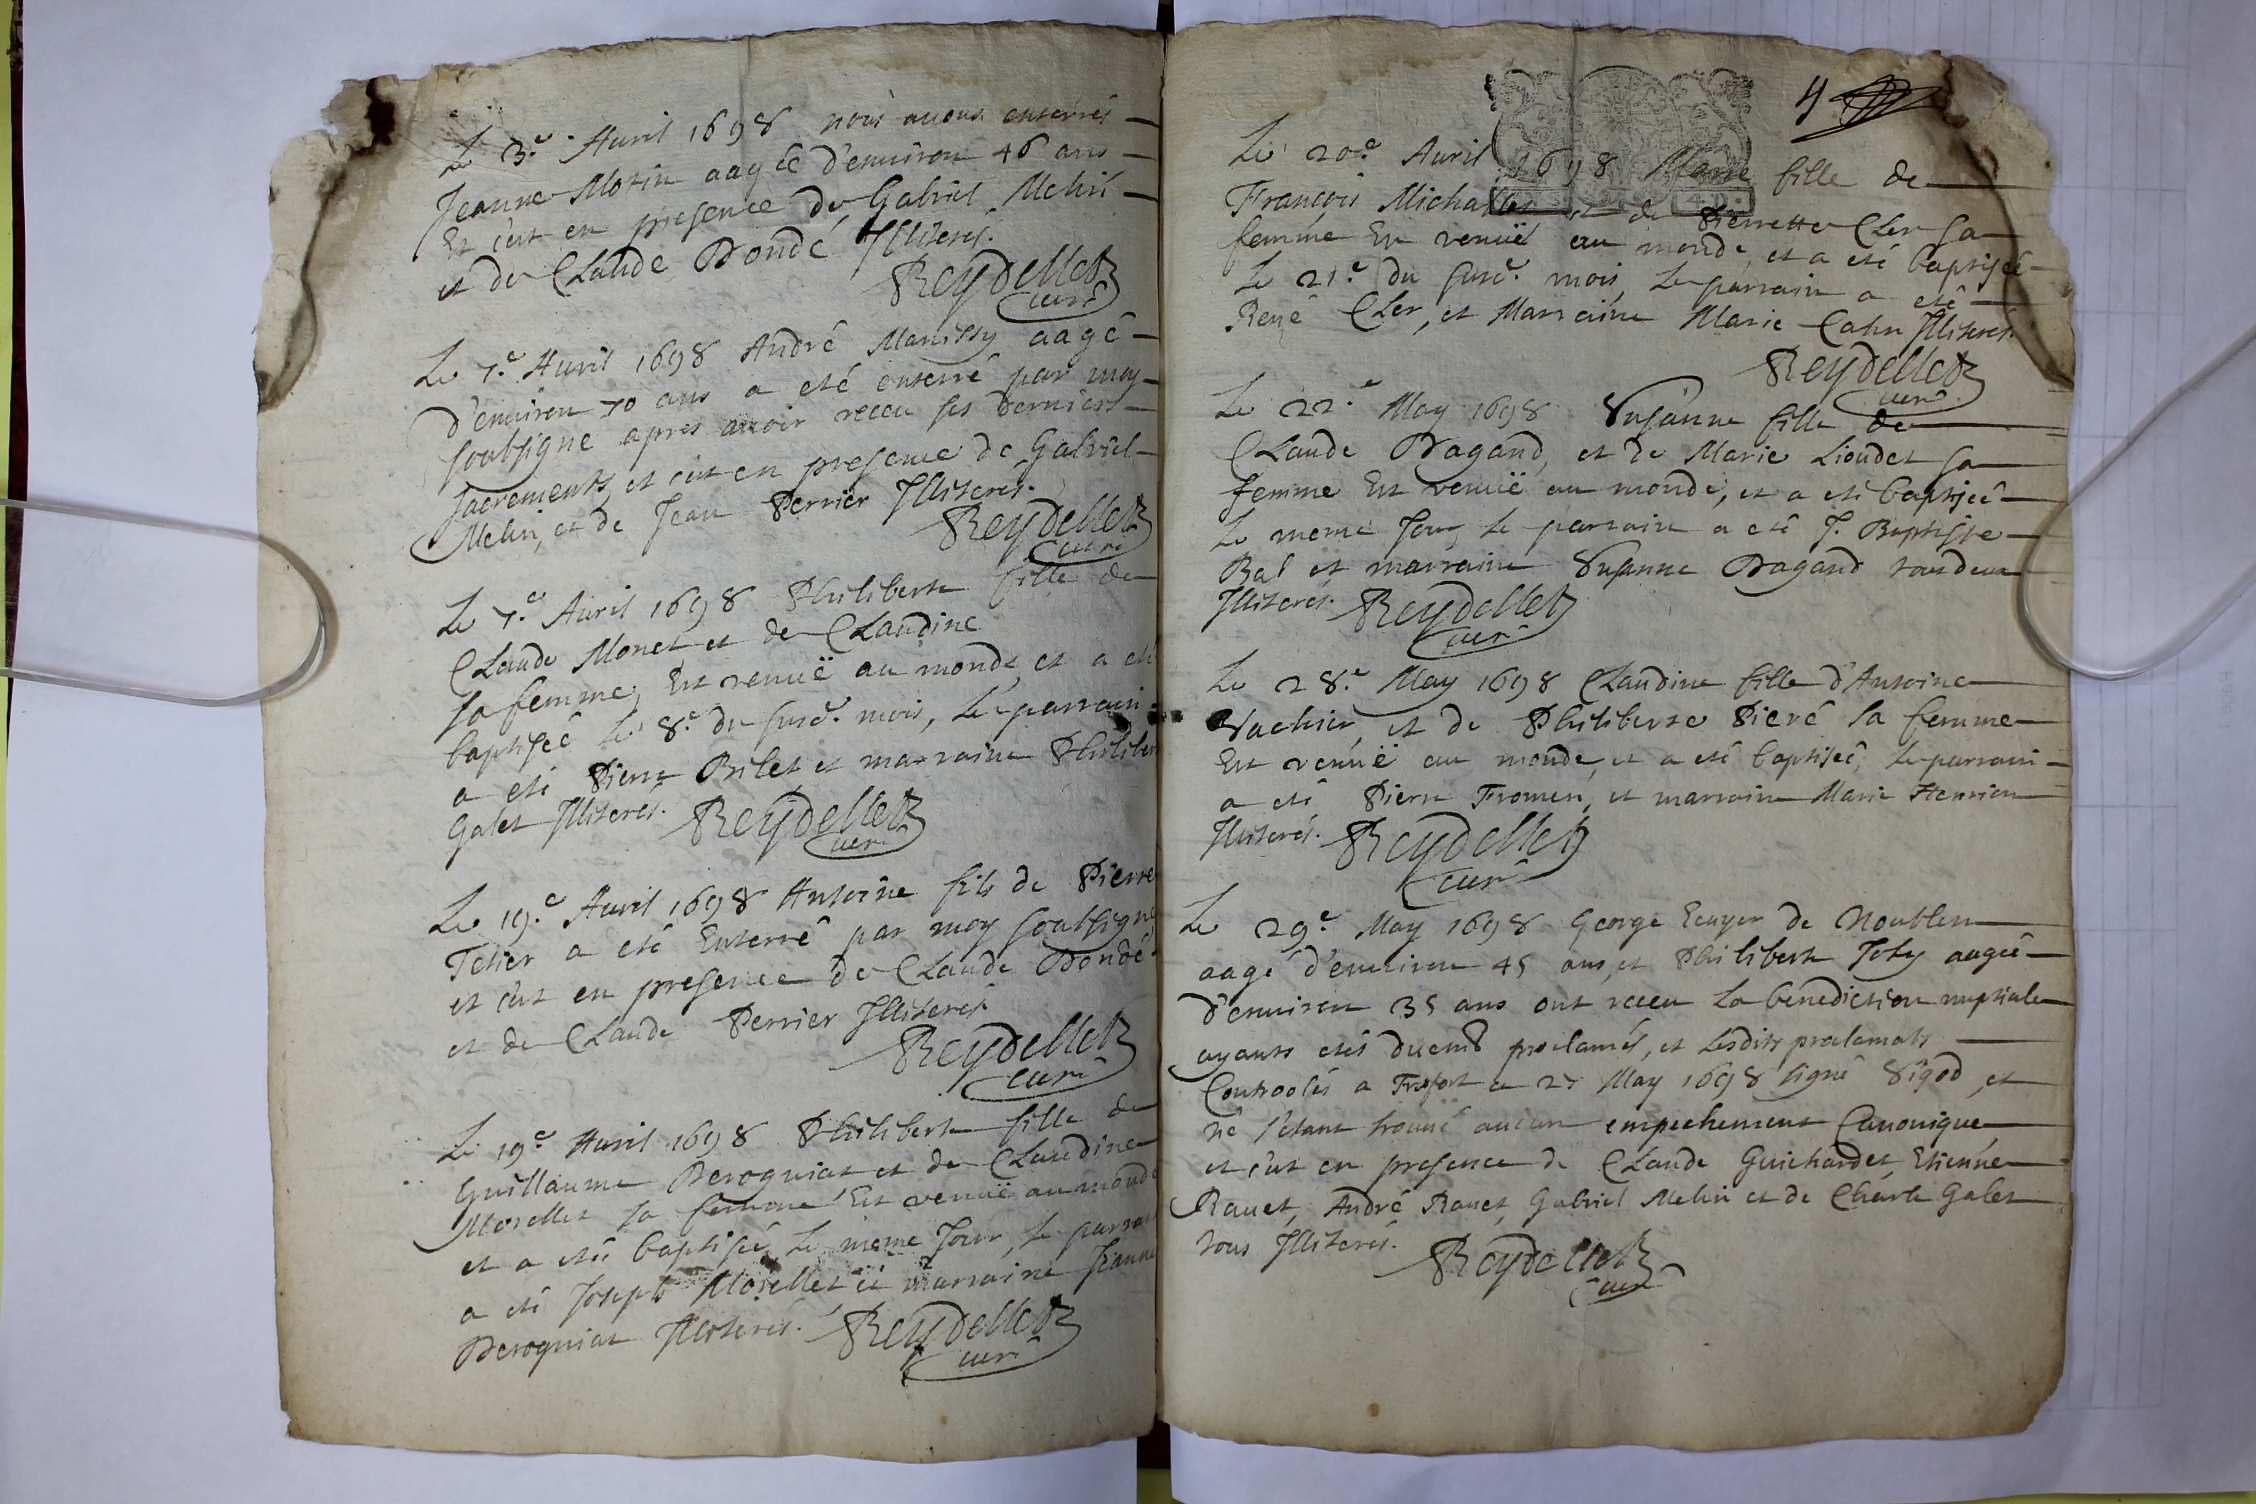 Le 3.e Auril 1698 nous auons enterrés
Jeanne Morin aagée d'enuiron 46 ans
Et c'est en presence de Gabriel Melin
et de Claude Dondé Illiterés.
Reydellet
curé
Le 7.e Auril 1698 André Manissy aagé
d'enuiron 70 ans a eté enterré par moy
soubsigné apres auoir receu ses derniers
sacrements, et c'est en presence de Gabriel
Melin, et de Jean Perrier Illiterés.
Reydellet
curé
Le 7.e Auril 1698 Philiberte fille de
Claude Monet et de Claudine
sa femme, Est venuë au monde, et a eté
baptiseé le 8.e du susd. mois, Le parrain
a eté Pierre Bilet et marraine Philiber
Galet Illiterés. Reydellet
curé
Le 19.e Auril 1698 Antoine fils de Pierre
Tetier a eté Enterré par moy soubsigné
et c'est en presence de Claude Dondé
et de Claude Perrier Illiterés
Reydellet
curé
Le 19.e Auril 1698 Philiberte fille de
Guillaume Deroguiat et de Claudine
Morellet sa femme Est venuë au monde
et a eté baptiseé Le meme Jour, Le parrai
a eté Joseph Morellet et marraine Jeanne
Deroguiat Illiterés. Reydellet
curé
4
Le 20.e Auril 1698 Marie fille de
François Michallet et de Pierrette Cler sa
femme Est venuë au monde, et a eté baptiseé
Le 21.e du susd. mois, Le parrain a eté
René Cler, et Marraine Marie Catin Illiterés.
Reydellet
curé
Le 22.e May 1698 Susanne fille de
Claude Dagand, et de Marie Lioudet sa
femme Est venuë au monde, et a eté baptiseé
Le meme Jour, Le parrain a eté J. Baptiste
Bal et marraine Susanne Dagand tous deux
Illiterés. Reydellet
curé
Le 28.e May 1698 Claudine fille d'Antoine
Vachier, et de Philiberte Pieré sa femme
Est venuë au monde, et a eté baptiseé, Le parrain
a eté Pierre Fromen, et marraine Marie Henrion
Illiterés. Reydellet
curé
Le 29.e May 1698 George Ecuyer de
aagé d'enuiron 45 ans, et Philiberte Joly aageé
d'enuiron 35 ans ont receu La benediction nuptiale
ayants etés duem.t proclamés, et Lesdits proclamats
Controolés a Trefort le May 1698 signé Sigod, et
ne s'etant trouué aucun empechement Canonique
et c'est en presence de Claude Guichardet, Etienne
Rauet, André Rauet, Gabriel Melin et de Charle Galet
tous Illiterés. Reydellet
curé